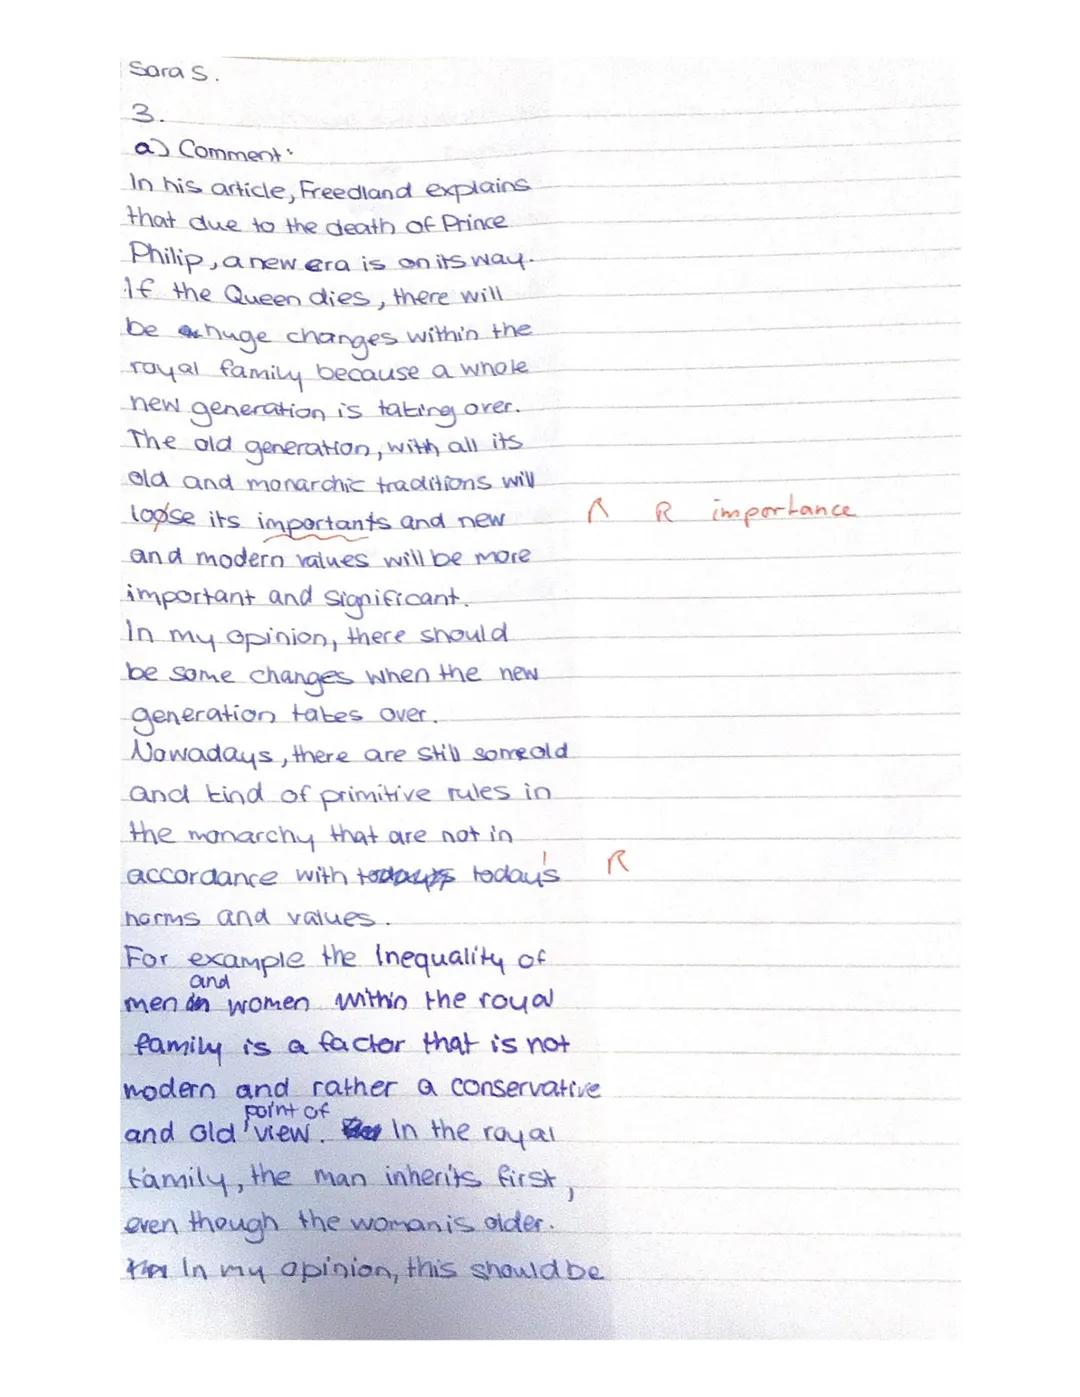 Sara S.
3.
a) Comment:
In his article, Freedland explains
that due to the death of Prince
Philip, a new era is on its way.
If the Queen dies, there will
be huge changes within the
royal family because a whole
new generation is taking over.
The old generation, with all its
old and monarchic traditions will
loose its importants and new R R importance
and modern values will be more
important and significant.
In my opinion, there should
be some changes when the new
generation takes over.
Nowadays, there are still some old
and kind of primitive rules in
the monarchy that are not in
accordance with todays today's R
norms and values.
For example the Inequality of
and
men in women within the royal
family is a factor that is not
modern and rather a conservative
point of
and old view. In the royal
family, the man inherits first,
even though the woman is older.
In my opinion, this should be